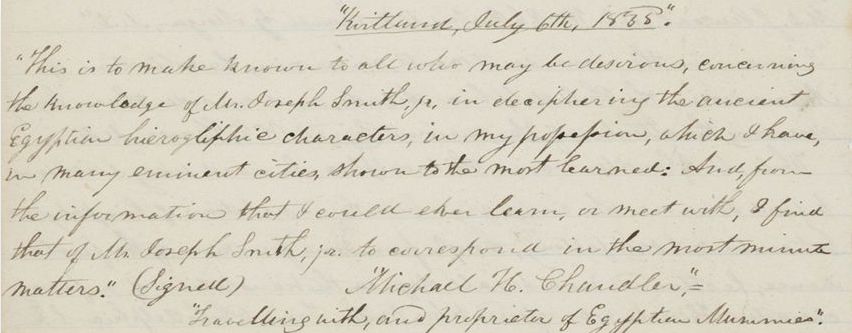 "Kirtland, July 6th, 1835".
"This is to make known to all who may be desirous, concerning
the knowledge of Mr. Joseph Smith, jr, in deciphering the ancient
Egyptian hierogliphic characters, in my possession, which I have,
in many eminent cities, shown to the most learned: And, from
the information that I could ever learn, or meet with, I find
that of Mr. Joseph Smith, jr. to correspond in the most minute
matters." (Signed) "Michael H. Chandler",=
"Travelling with, and proprietor of Egyptian Mummies".